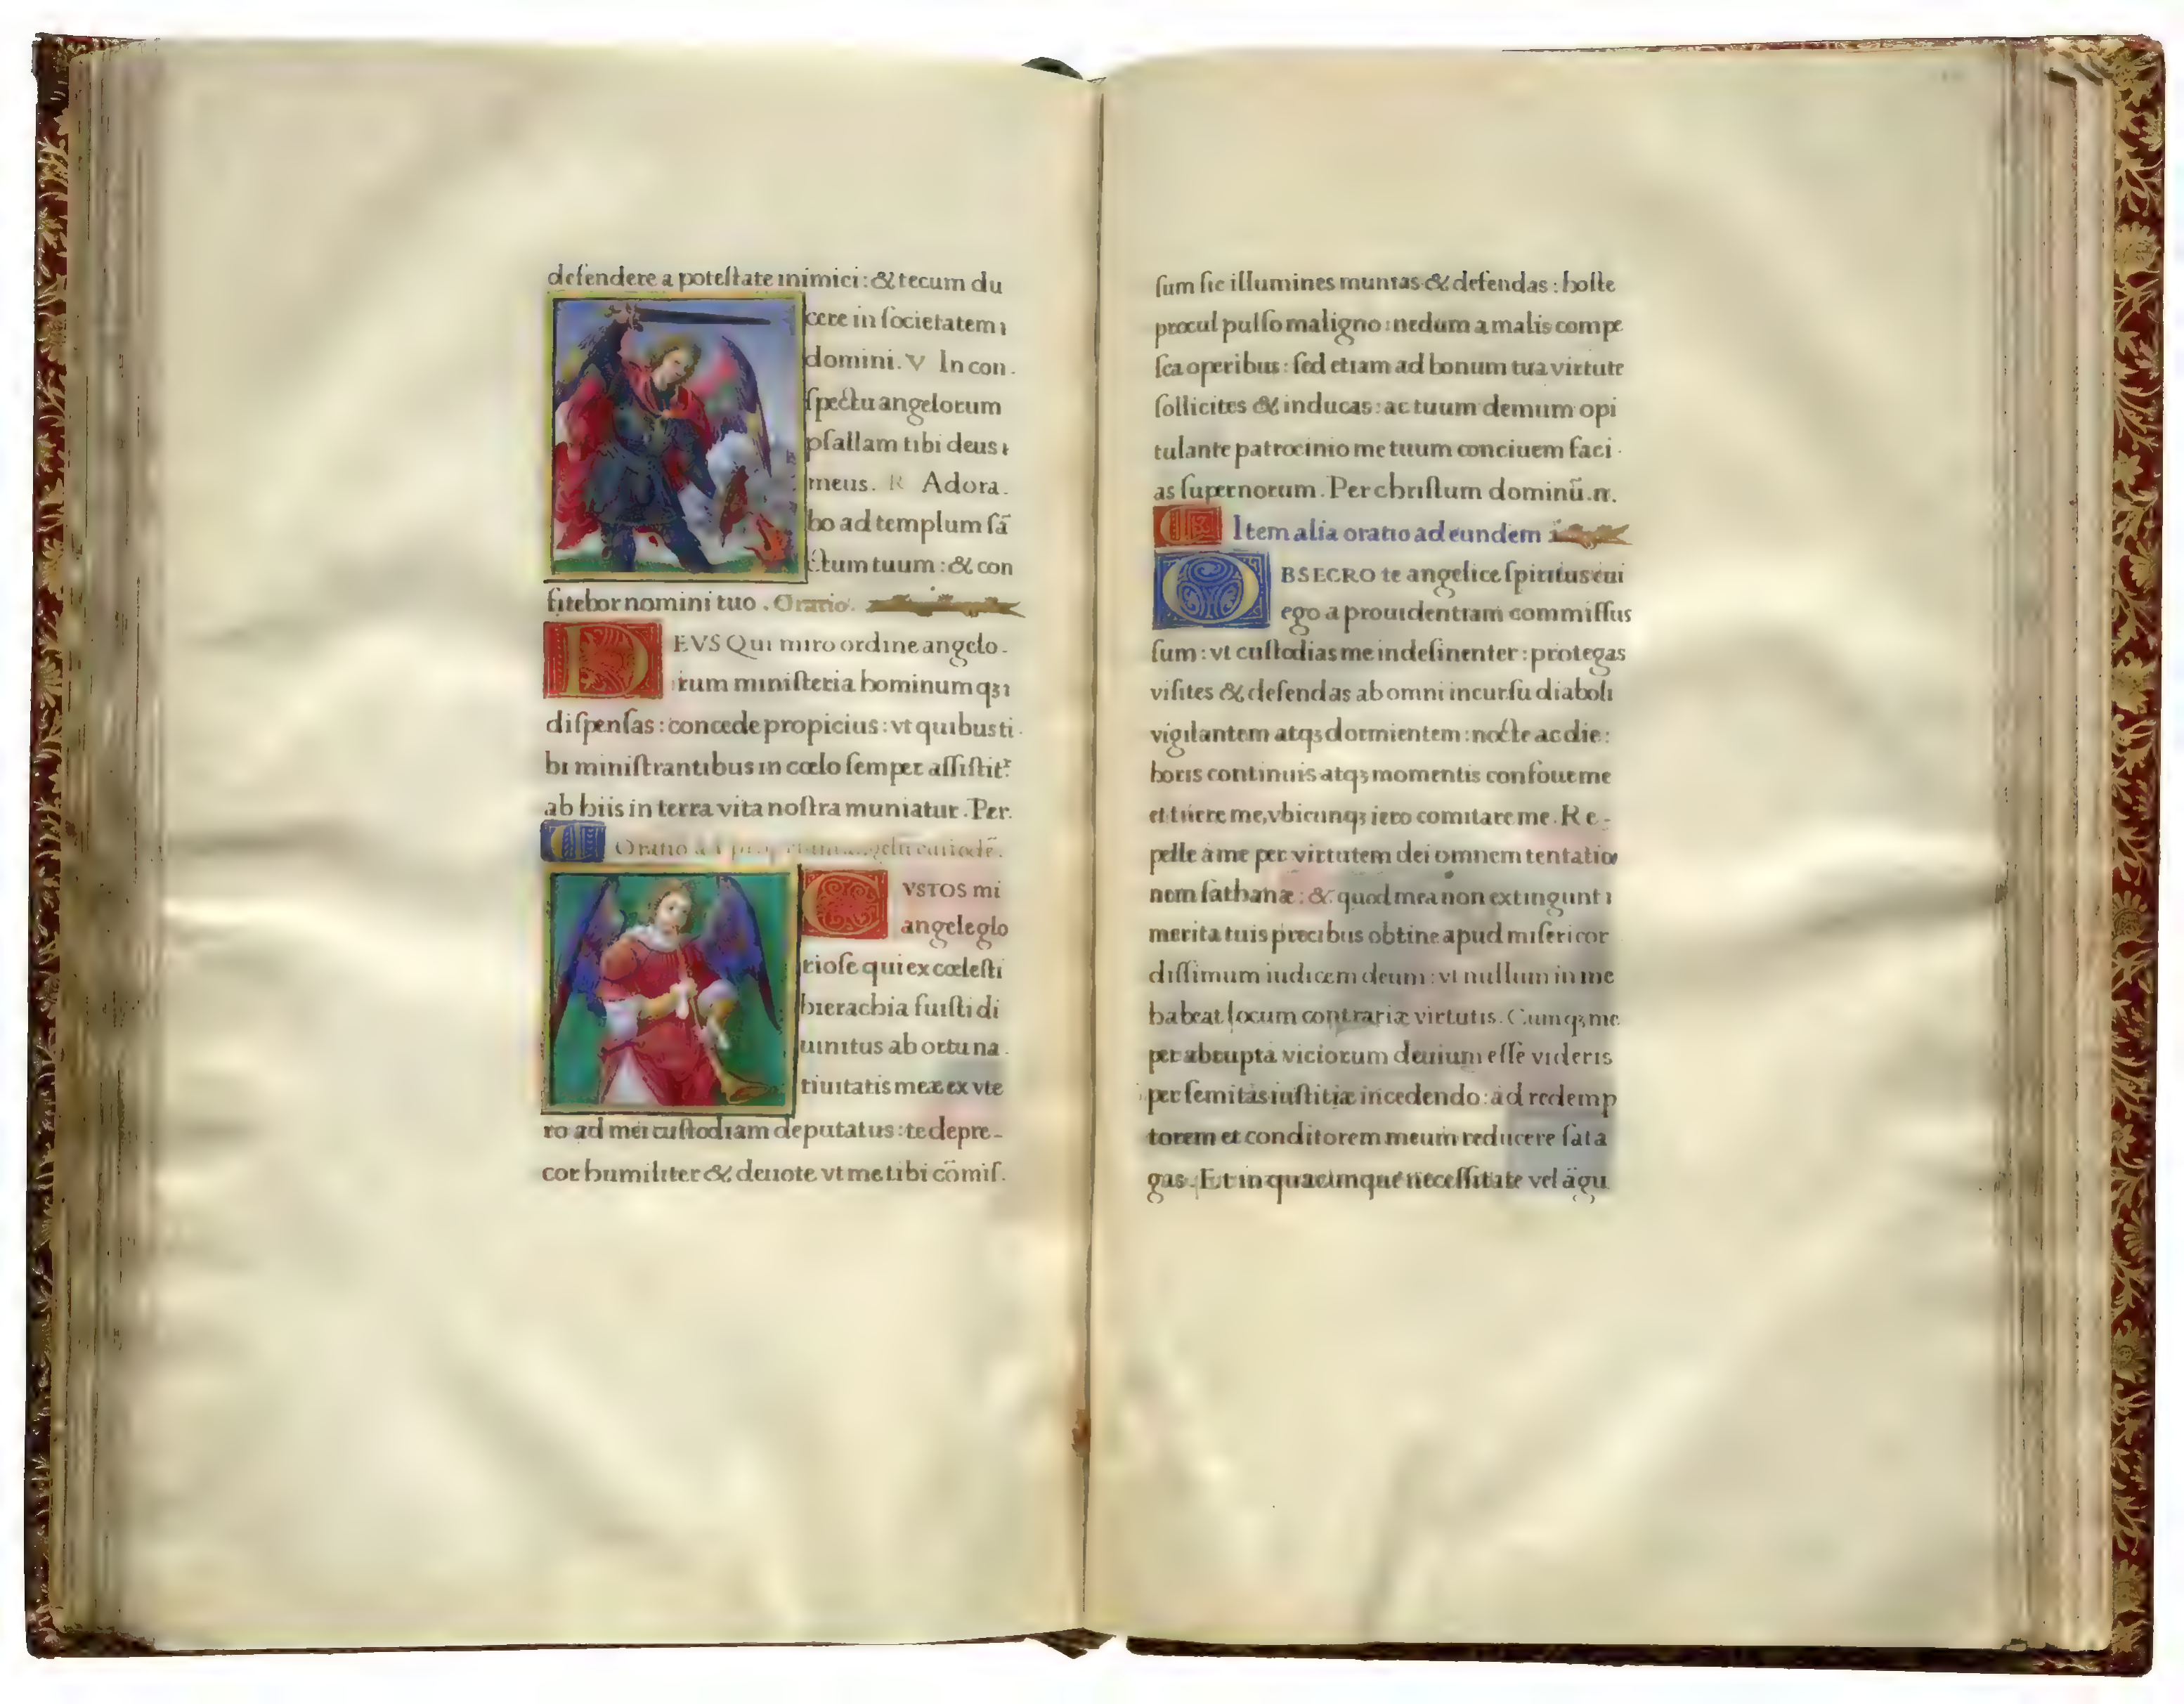 defendere a poteſtate inimici : & tecum du
cere in ſocietatem
domini. V In con.
ſpectu angelorum
pſallam tibi deus
meus. R Adora.
bo ad templum ſā
ctum tuum : & con
fitebor nomini tuo . Oratio.
DEVS Qui miro ordine angelo.
rum miniſteria hominum qꝫ
diſpenſas : concede propicius : vt quibus ti.
bi miniſtrantibus in cœlo ſemper aſſiſtit᷑
ab hiis in terra vita noſtra muniatur . Per.
Oratio ad
CVSTOS mi
angele glo
rioſe qui ex cœleſti
hierachia fuiſti di
uinitus ab ortu na.
tiuitatis meæ ex vte
ro ad mei cuſtodiam deputatus : te depre-
cor humiliter & deuote vt me tibi cōmiſ.
ſum ſic illumines munias & defendas : hoſte
procul pulſo maligno : nedum a malis compe
ſca operibus : ſed etiam ad bonum tua virtute
ſollicites & inducas : ac tuum demum opi
tulante patrocinio me tuum conciuem faci.
as ſupernorum . Per chriſtum dominū .nr.
Item alia oratio ad eundem
OBSECRO te angelice ſpiritus cui
ego a prouidentiam commiſſus
ſum : vt cuſtodias me indeſinenter : protegas
viſites & defendas ab omni incurſu diaboli
vigilantem atqꝫ dormientem : nocte ac die :
horis continuis atqꝫ momentis confoue me
et tuere me, vbicunqꝫ iero comitare me . Re-
pelle a me per virtutem dei omnem tentatio
nem ſathanæ : & quod mea non extingunt
merita tuis precibus obtine apud miſericor
diſſimum iudicem deum : vt nullum in me
habeat locum contrariæ virtutis. Cumqꝫ me
per abrupta viciorum deuium eſſe videris
per ſemitas iuſtitiæ incedendo : ad redemp
torem et conditorem meum reducere ſata
gas . Et in quacunque neceſſitate vel āgu